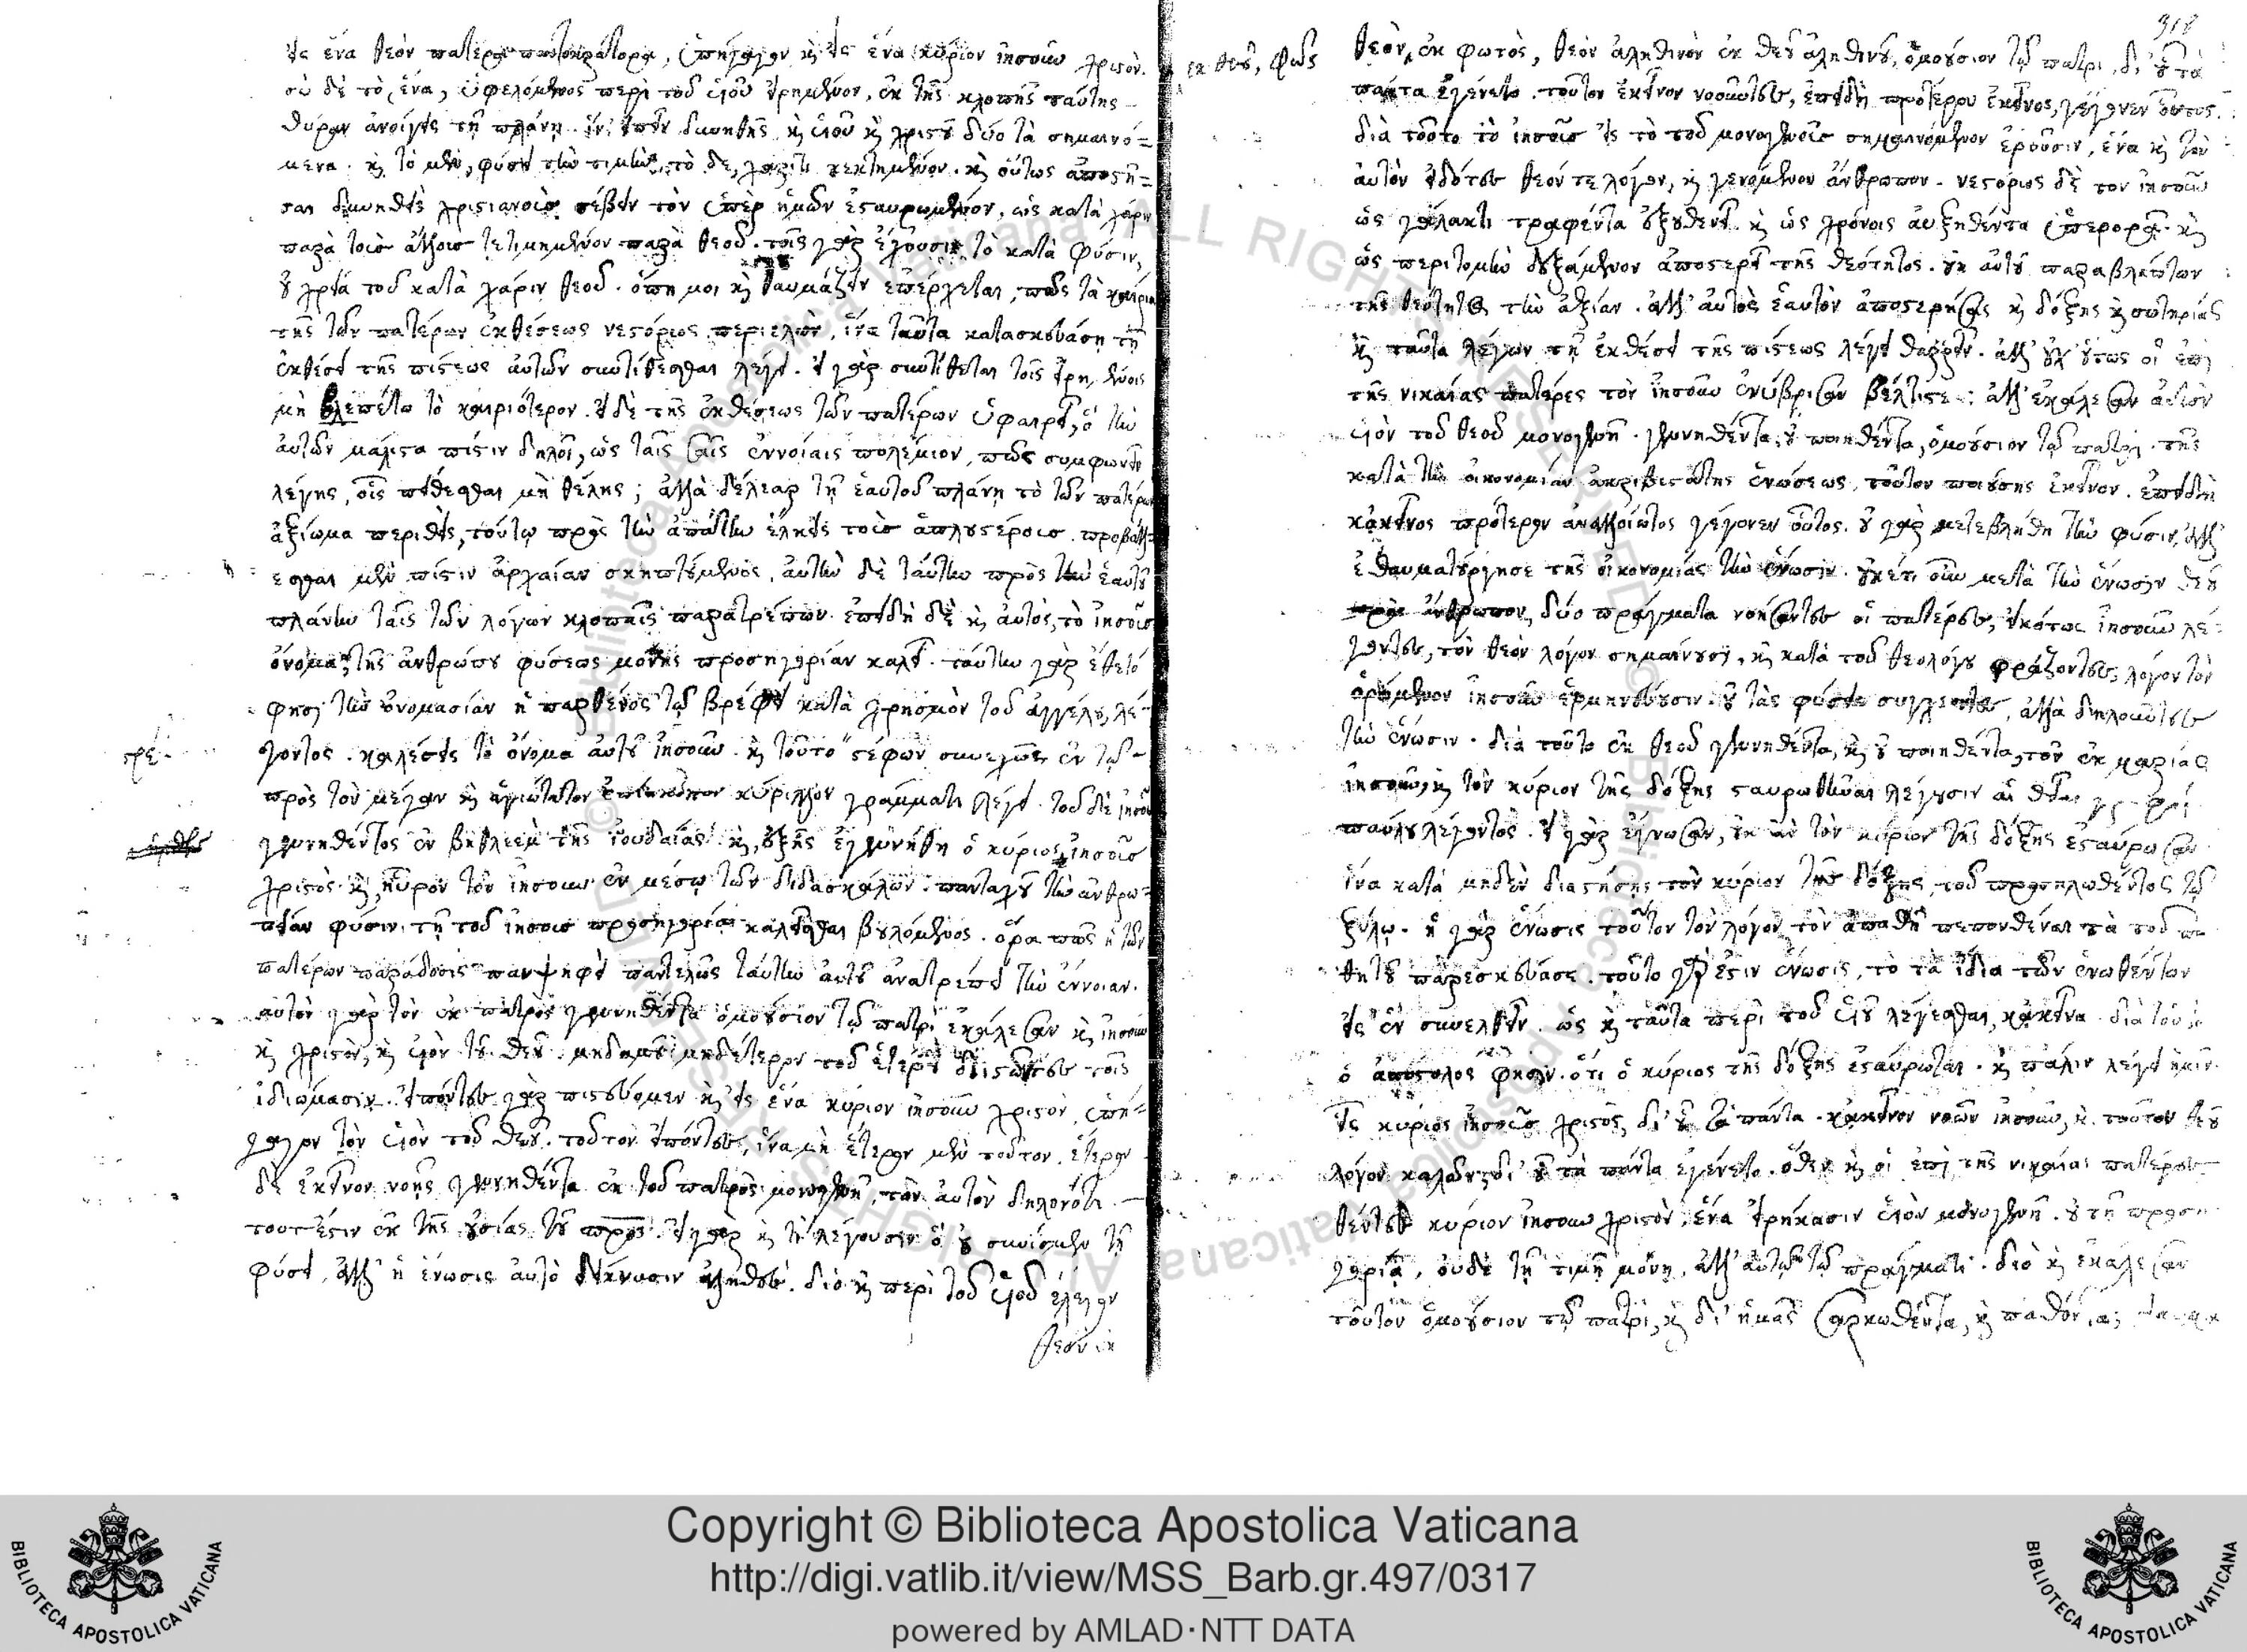 εἰς ἕνα θεὸν πατέρα παντοκράτορα, ἐπήγαγον καὶ εἰς ἕνα κύριον ἰησοῦν χριστόν.
σὺ δὲ τὸ, ἕνα, ὑφελόμενος περὶ τοῦ υἱοῦ εἰρημένον, ἐκ τῆς κλοπῆς ταύτης
θύραν ἀνοίγεις τῇ πλάνῃ. ἵν' εἰπεῖν δυνηθῇς καὶ υἱοῦ καὶ χριστοῦ δύο τὰ σημαινό-
μενα. καὶ τὸ μὲν, φύσει τὴν τιμὴν, τὸ δὲ, χάριτι κεκτημένον. καὶ οὕτως ἀποστῆ-
σαι δυνηθεὶς χριστιανοὺς σέβειν τὸν ὑπὲρ ἡμῶν ἐσταυρωμένον, ὡς κατὰ χάριν
παρὰ τοῖς ἄλλοις τετιμημένον παρὰ θεοῦ. τοῖς γὰρ ἔχουσι τὸ κατὰ φύσιν,
οὐ χρεία τοῦ κατὰ χάριν θεοῦ. ὅπη μοι καὶ θαυμάζειν ἐπέρχεται, πῶς τὰ καίρια
τῆς τῶν πατέρων ἐκθέσεως νεστόριος περιελὼν, ἵνα ταῦτα κατασκευάσῃ τῇ
ἐκθέσει τῆς πίστεως αὐτῶν συντίθεσθαι λέγει. εἰ γὰρ συντίθεται τοῖς εἰρημένοις
μὴ βλεπέτω τὸ καιριότερον. εἰ δὲ τῆς ἐκθέσεως τῶν πατέρων ὑφαιρεῖ, ὃ τὴν
αὐτῶν μάλιστα πίστιν δηλοῖ, ὡς ταῖς σαῖς ἐννοίαις πολέμιον, πῶς συμφωνεῖν
λέγης, οἷς πείθεσθαι μὴ θέλης; ἀλλὰ δέλεαρ τῇ ἑαυτοῦ πλάνῃ τὸ τῶν πατέρων
ἀξίωμα περιθεὶς, τούτῳ πρὸς τὴν ἀπάτην ἕλκεις τοὺς ἁπλουστέρους. προβάλλ-
εσθαι μὲν πίστιν ἀρχαίαν σκηπτόμενος, αὐτὴν δὲ ταύτην πρὸς τὴν ἑαυτοῦ
πλάνην ταῖς τῶν λόγων κλοπαῖς παρατρέπων. ἐπειδὴ δὲ καὶ αὐτὸς, τὸ ἰησοῦς
ὄνομα, τῆς ἀνθρώπου φύσεως μόνης προσηγορίαν καλεῖ. ταύτην γὰρ ἔθετό
φησι τὴν ὀνομασίαν ἡ παρθένος τῷ βρέφει κατὰ χρησμὸν τοῦ ἀγγέλου, λέ-
γοντος. καλέσεις τὸ ὄνομα αὐτοῦ ἰησοῦν. καὶ τοῦτο στρέφων συνεχῶς ἐν τῷ
πρὸς τὸν μέγαν καὶ ἁγιώτατον ἐπίσκοπον κύριλλον γράμματι λέγει. τοῦ δὲ ἰησοῦ
γεννηθέντος ἐν βηθλεὲμ τῆς ἰουδαίας. καὶ, ἐξ ἧς ἐγεννήθη ὁ κύριος ἰησοῦς
χριστός. καὶ, ηὗρον τὸν ἰησοῦν ἐν μέσῳ τῶν διδασκάλων. πανταχοῦ τὴν ἀνθρω-
πείαν φύσιν, τῇ τοῦ ἰησοῦ προσηγορίᾳ καλεῖσθαι βουλόμενος. ὅρα πῶς ἡ τῶν
πατέρων παράδοσις παμψηφεὶ παντελῶς ταύτην αὐτοῦ ἀνατρέπει τὴν ἔννοιαν.
αὐτὸν γὰρ τὸν ἐκ πατρὸς γεννηθέντα ὁμοούσιον τῷ πατρὶ ἐκάλεσαν καὶ ἰησοῦν
καὶ χριστὸν, καὶ υἱὸν τοῦ θεοῦ. μηδαμοῦ μηδέτερον τοῦ ἑτέρου διιστῶντες τοῖς
ἰδιώμασιν. εἰπόντες γὰρ πιστεύομεν καὶ εἰς ἕνα κύριον ἰησοῦν χριστὸν, ἐπή-
γαγον τὸν υἱὸν τοῦ θεοῦ. τοῦτον εἰπόντες, ἵνα μὴ ἕτερον μὲν τοῦτον, ἕτερον
δὲ ἐκεῖνον νοῇς γεννηθέντα ἐκ τοῦ πατρὸς μονογενῆ, τὸν αὐτὸν δηλονότι
τουτέστιν ἐκ τῆς οὐσίας τοῦ πρς. εἰ γὰρ καὶ τὶ λέγουσιν ὃ οὐ συνίσμεν τῇ
φύσει, ἀλλ' ἡ ἕνωσις αὐτὸ δείκνυσιν ἀληθές. διὸ καὶ περὶ τοῦ υἱοῦ ἔλεγον
θεὸν ἐκ
στρέ-
318
ἐκ θεοῦ, φῶς
θεὸν, ἐκ φωτὸς, θεὸν ἀληθινὸν ἐκ θεοῦ ἀληθινοῦ, ὁμοούσιον τῷ πατρὶ, δι' οὗ τὰ
πάντα ἐγένετο. τοῦτον ἐκεῖνον νοοῦντες, ἐπειδὴ πρότερον ἐκεῖνος, γέγονεν οὗτος.
διὰ τοῦτο τὸ ἰησοῦς εἰς τὸ τοῦ μονογενοῦς σημαινόμενον ἕρουσιν, ἕνα καὶ τὸν
αὐτὸν εἰδότες θεόν τε λόγον, καὶ γενόμενον ἄνθρωπον. νεστόριος δὲ τὸν ἰησοῦν
ὡς γάλακτι τραφέντα ἐξουθενεῖ. καὶ ὡς χρόνοις αὐξηθέντα ὑπερορᾷ. καὶ
ὡς περιτομὴν δεξάμενον ἀποστερεῖ τῆς θεότητος. οὐκ αὐτοῦ παραβλάπτων
τῆς θεότητος τὴν ἀξίαν. ἀλλ' αὐτὸς ἑαυτὸν ἀποστερήσας καὶ δόξης καὶ σωτηρίας
καὶ ταῦτα λέγων τῇ ἐκθέσει τῆς πίστεως λέγει θαρρεῖν. ἀλλ' οὐχ οὕτως οἱ ἐπὶ
τῆς νικαίας πατέρες τὸν ἰησοῦν ἐνύβρισαν βέλτιστε; ἀλλ' ἐκάλεσαν αὐτὸν
υἱὸν τοῦ θεοῦ μονογενῆ. γεννηθέντα, οὐ ποιηθέντα, ὁμοούσιον τῷ πατρί. τῆς
κατὰ τὴν οἰκονομίαν ἀκριβεστάτης ἑνώσεως, τοῦτον ποιούσης ἐκεῖνον. ἐπειδὴ
κἀκεῖνος πρότερον ἀναλλοίωτος γέγονεν οὗτος. οὐ γὰρ μετεβλήθη τὴν φύσιν, ἀλλ'
ἐθαυματούργησε τῆς οἰκονομίας τὴν ἕνωσιν. οὐκέτι οὖν μετὰ τὴν ἕνωσιν θεοῦ
πρὸς ἄνθρωπον, δύο πράγματα νοήσαντες οἱ πατέρες, εἰκότως ἰησοῦν λέ-
γοντες, τὸν θεὸν λόγον σημαίνουσι, καὶ κατὰ τοῦ θεολόγου φράζοντες, λόγον τὸν
ὁρώμενον ἰησοῦν ἑρμηνεύουσιν. οὐ τὰς φύσεις συγχέοντες, ἀλλὰ δηλοῦντες
τὴν ἕνωσιν. διὰ τοῦτο ἐκ θεοῦ γεννηθέντα, καὶ οὐ ποιηθέντα, τὸν ἐκ μαρίας
ἰησοῦν, καὶ τὸν κύριον τῆς δόξης σταυρωθῆναι λέγουσιν αἱ θεῖαι γραφαί
παύλου λέγοντος. εἰ γὰρ ἔγνωσαν, οὐκ ἂν τὸν κύριον τῆς δόξης ἐσταύρωσαν.
ἵνα κατὰ μηδὲν διαστήσῃς τὸν κύριον τῆς δόξης, τοῦ προσηλωθέντος τῷ
ξύλῳ. ἡ γὰρ ἕνωσις τοῦτον τὸν λόγον τὸν ἀπαθῆ πεπονθέναι τὰ τοῦ πα
θητοῦ παρεσκεύασε. τοῦτο γάρ ἐστιν ἕνωσις, τὸ τὰ ἴδια τῶν ἑνωθέντων
εἰς ἓν συνελθεῖν. ὡς καὶ ταῦτα περὶ τοῦ υἱοῦ λέγεσθαι, κἀκεῖνα. διὰ τοῦτο
ὁ ἀπόστολός φησιν. ὅτι ὁ κύριος τῆς δόξης ἐσταύρωται. καὶ πάλιν λέγει ἡμῖν.
εἷς κύριος ἰησοῦς χριστὸς, δι' οὗ τὰ πάντα. κἀκεῖνον νοῶν ἰησοῦν, καὶ τοῦτον θεοῦ
λόγον καλῶν, δι' οὗ τὰ πάντα ἐγένετο. ὅθεν καὶ οἱ ἐπὶ τῆς νικαίας πατέρες
θέντες κύριον ἰησοῦν χριστὸν, ἕνα εἰρήκασιν υἱὸν μονογενῆ. οὐ τῇ προση
γορίᾳ, οὐδὲ τῇ τιμῇ μόνῃ, ἀλλ' αὐτῷ τῷ πράγματι. διὸ καὶ ἐκάλεσαν
τοῦτον ὁμοούσιον τῷ πατρὶ, καὶ δι' ἡμᾶς σαρκωθέντα, καὶ παθόντα,
Copyright © Biblioteca Apostolica Vaticana
http://digi.vatlib.it/view/MSS_Barb.gr.497/0317
powered by AMLAD·NTT DATA
BIBLIOTECA APOSTOLICA VATICANA
BIBLIOTECA APOSTOLICA VATICANA